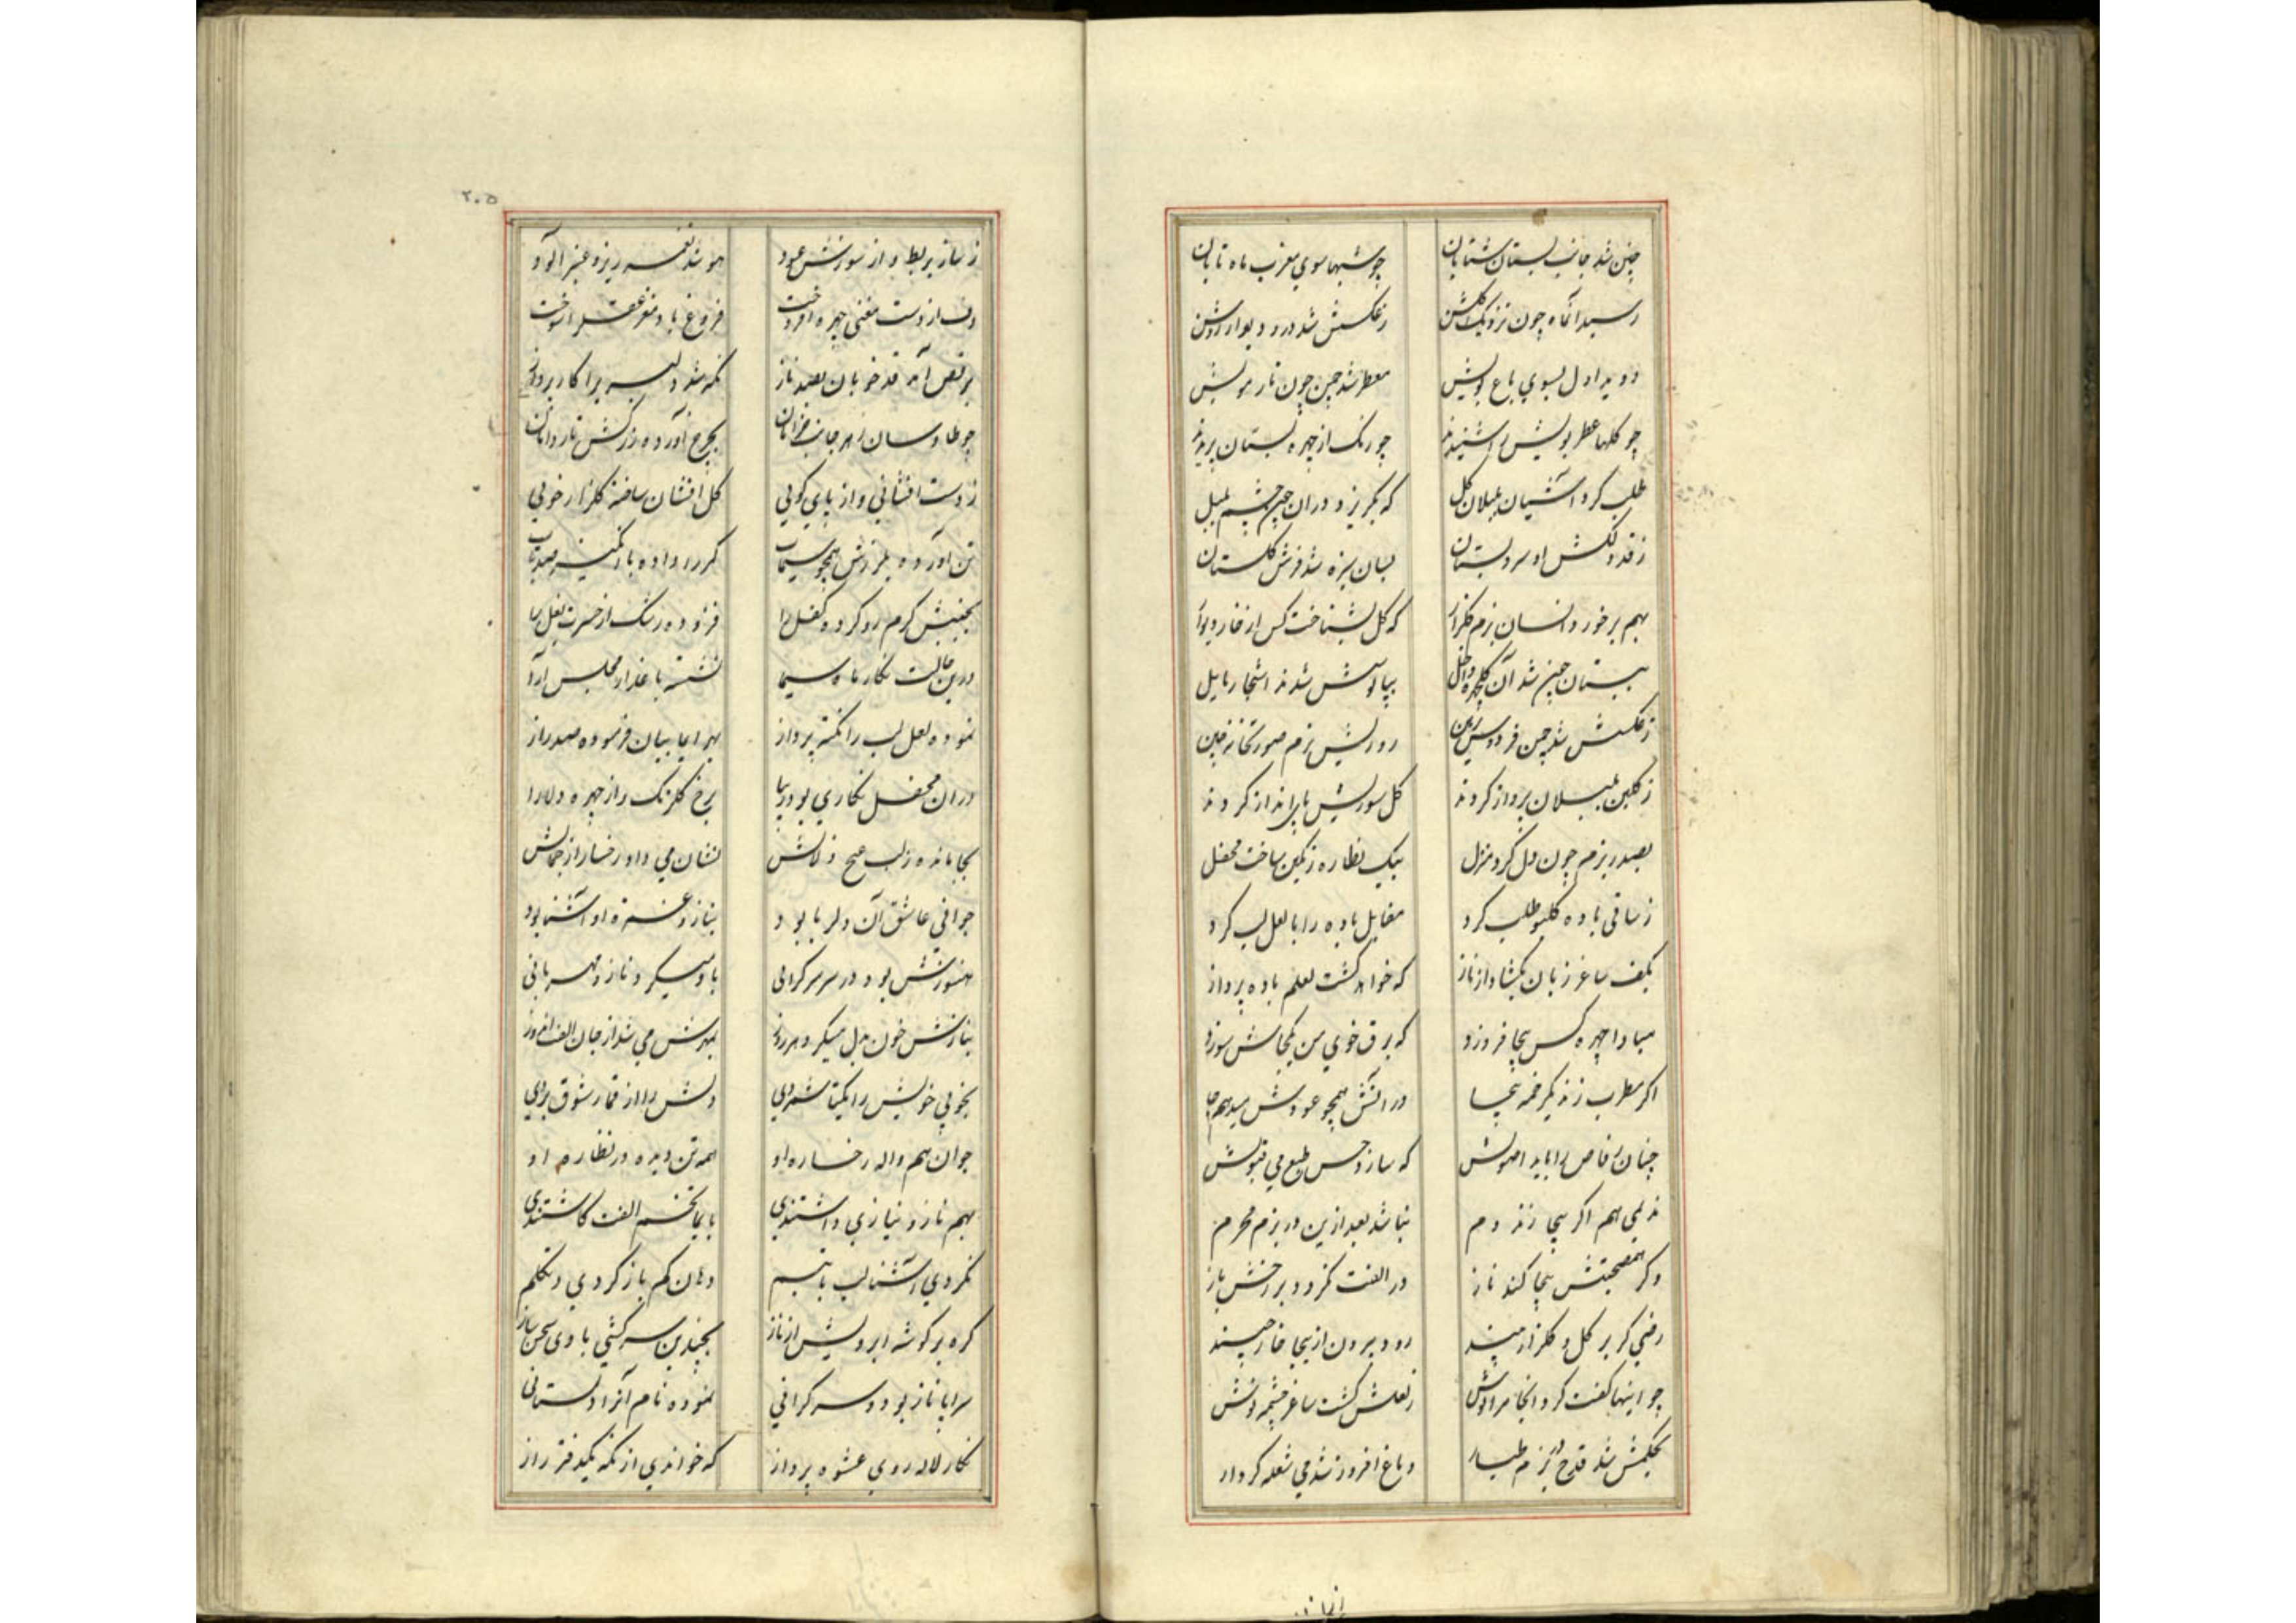 چنین شد جانب بستان شتابان چو شبها سوی مغرب ماه تابان
رسید آنماه چون نزدیک گلشن ز عکسش شد در و دیوار روشن
دوید اول بسوی باغ بویش معطر شد چمن چون تار مویش
چو گلها عطر بویش را شنیدند چو رنک از چهره بستان پریدند
طلب کرد آشیان بلبلان گل که بگریزد در آن چشم بلبل
ز قد دلکش او سرو بستان بسان سبزه شد فرش گلستان
بهم برخورد انسان بزم گلزار که گل نشناخت کس از خار دیوار
ببستان چمن شد آن گلچهره داخل بپابوسش شدند اشجار مایل
ز عکسش شد چمن فردوس رویش بزم صورتخانه چین
ز گلبن بلبلان پرواز کردند گل سوریش پاانداز کردند
بصدر بزم چون دل کرد منزل بیک نظاره رنگین ساخت محفل
ز ساقی باده گلبو طلب کرد مقابل باده را با لعل لب کرد
بکف ساغر زبان بگشاد از ناز که خواهد گشت لعلم باده پرداز
مبادا چهره کس بیجا فروزد که برق خوی من یکجاش سوزد
اگر مطرب زند یکزخمه بیجا در آتش همچو عودش میدهم جا
چنان رقاص را باید اصولش که سازد حسن طبع می قبولش
ندیمی هم اگر بیجا زند دم نباشد بعد ازین در بزم محرم
وگر همصحبتش بیجا کند ناز در الفت نگردد بر رخش باز
رقیبی گر بر گل و گلزار بیند رود بیرون ازینجا خار چیند
چو اینها گفت کرد انجا مرادش ز لعلش گشت ساغر چشمه نوش
بحکمش شد قدح در بزم طیار دماغ افروز شد می شعله کردار
۲۰۵
ز ساز بربط و از سوزش عود هوا شد نغمه ریز و عنبر آلود
دف از دست مغنی چهره افروخت فروغ باده مغز عقل را سوخت
برقص آمد قد خوبان بصد ناز نگه شد دلبریرا کار پرداز
چو طاوسان بهر جانب خرامان بچرخ آورده زرکش تار دامان
ز دست افشانی و از پای کوبی گل افشان ساخته گلزار خوبی
تن آورده بلرزش همچو سیماب کمر را داده با تمکین صد تاب
بجنبش گرم رو کرده کفل را فزوده رشک از حسرت بغل را
درین حالت نگار ماه سیما نشسته با عذار مجلس آرا
نموده لعل لب را نکته پرداز بهر ایما بیان فرموده صد راز
در آن محفل نگاری بود زیبا برخ گلرنک و از چهره دلارا
بجا مانده ز لب صبح زلالش نشان می داد رخسار از جمالش
جوانی عاشق آن دلربا بود بناز و غمزه او آشنا بود
هنوزش بود در سر سرگرانی باو میکرد ناز و مهربانی
بنازش خون بدل میکرد هر روز بمهرش می شد از جان الفت افروز
بخوبی خویش را یکتا شمردی دلش را از قمار شوق بردی
جوان هم واله رخساره او همه تن دیده در نظاره او
بهم ناز و نیازی داشتندی بایما تخم الفت کاشتندی
نکردی آشنا لب با تبسم دهان کم باز کردی در تکلم
گره بر گوشه ابرویش از ناز بچندین سرکشی با وی سخن ساز
سراپا ناز بود و سرگرانی نموده نام آنرا دلستانی
نگار لاله روی عشوه پرداز که خواندی از نگه یکدفتر راز